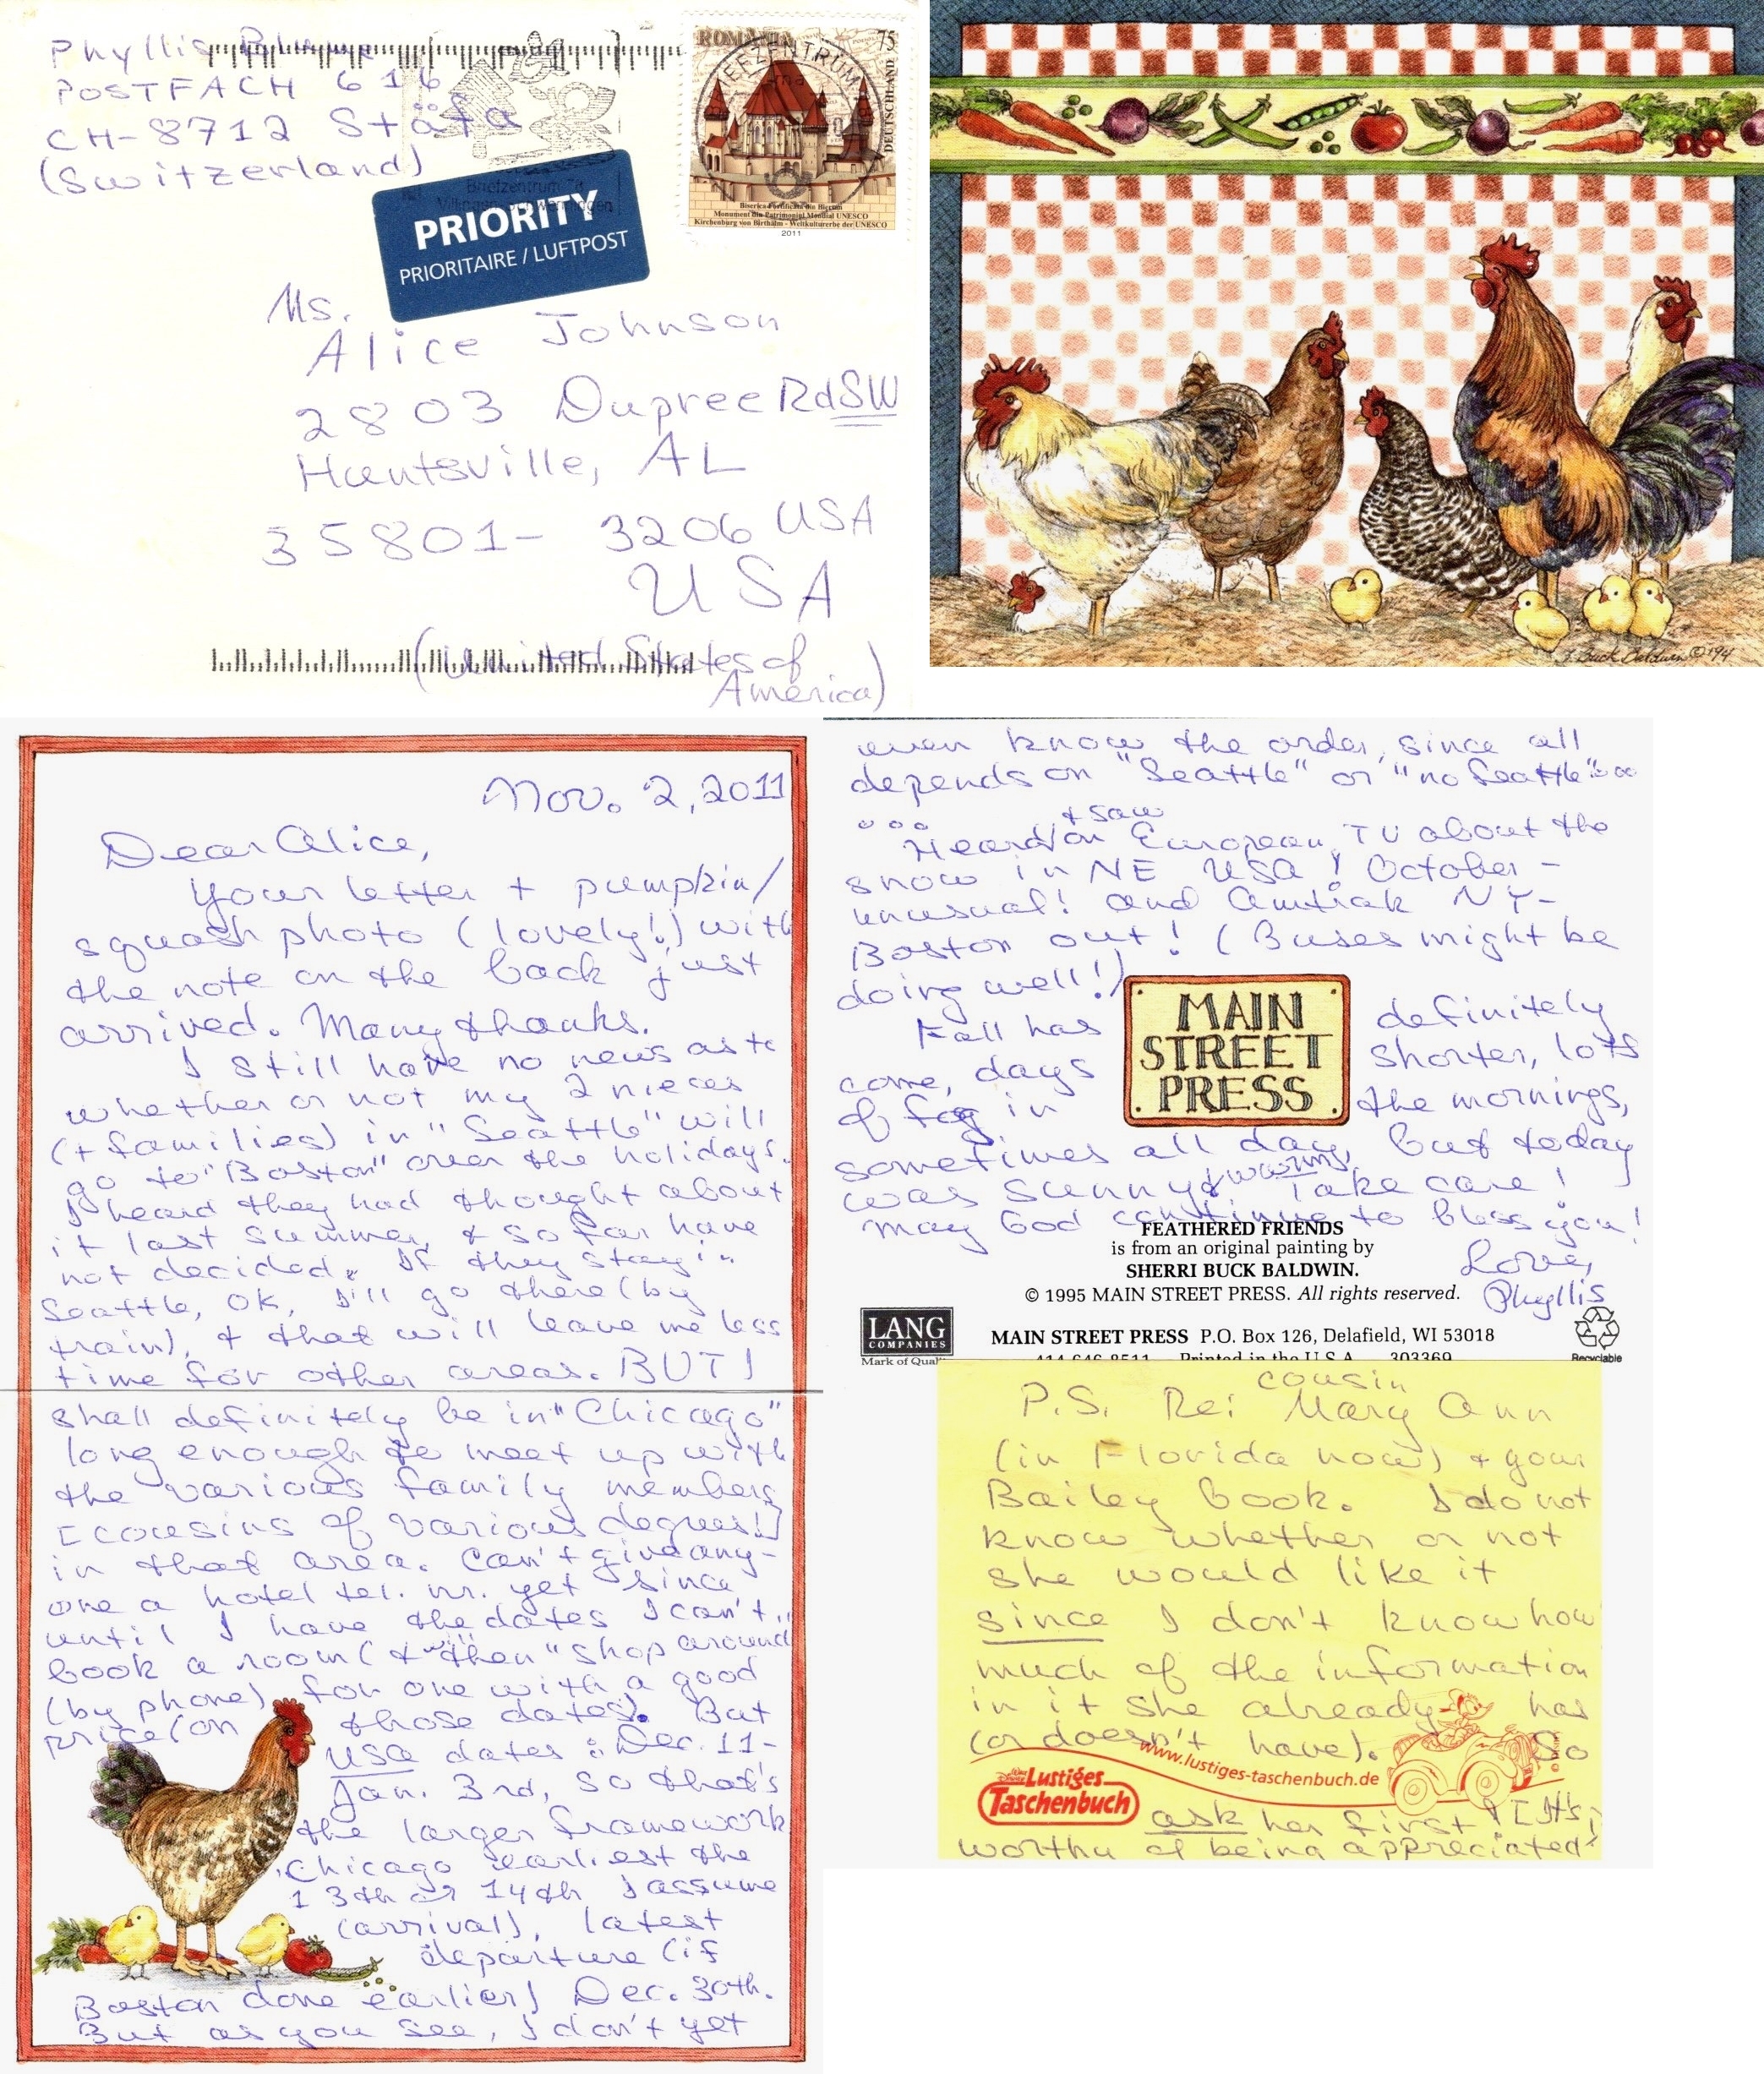 Phyllis
POSTFACH 616
CH-8712 Stäfa
(Switzerland)
Briefzentrum 78
PRIORITY
PRIORITAIRE / LUFTPOST
ROMANIA 75
BRIEFZENTRUM
DEUTSCHLAND
Biserica Fortificată din Biertan
Monument din Patrimoniul Mondial UNESCO
Kirchenburg von Birthälm - Weltkulturerbe der UNESCO
2011
Ms.
Alice Johnson
2803 Dupree Rd SW
Huntsville, AL
35801- 3206 USA
USA
(United States of
America)
B. Buck Baldwin © '94
Nov. 2, 2011
Dear Alice,
Your letter + pumpkin/
squash photo (lovely!) with
the note on the back just
arrived. Many thanks.
I still have no news as to
whether or not my 2 nieces
(+ families) in "Seattle" will
go to "Boston" over the holidays.
I heard they had thought about
it last summer, & so far have
not decided. If they stay in
Seattle, OK, I'll go there (by
train), & that will leave me less
time for other areas. BUT I
shall definitely be in "Chicago"
long enough to meet up with
the various family members
[cousins of various degrees!]
in that area. Can't give any-
one a hotel tel. nr. yet since
until I have the dates I can't
book a room (& then "shop around"
(by phone) for one with a good
price (on those dates). But
USA dates: Dec. 11-
Jan. 3rd, so that's
the larger framework
Chicago earliest the
13th or 14th I assume
(arrival), latest
departure (if
Boston done earlier) Dec. 30th.
But as you see, I don't yet
even know the order, since all
depends on "Seattle" or "no Seattle"...
...
& saw
Heard/on European TV about the
snow in NE USA! October -
unusual! and Amtrak NY-
Boston out! (Buses might be
doing well!)
MAIN
STREET
PRESS
Fall has definitely
come, days shorter, lots
of fog in the mornings,
sometimes all day, but today
was sunny & warm. Take care!
May God continue to bless you!
Love,
Phyllis
FEATHERED FRIENDS
is from an original painting by
SHERRI BUCK BALDWIN.
© 1995 MAIN STREET PRESS. All rights reserved.
LANG
COMPANIES
Mark of Quality
MAIN STREET PRESS P.O. Box 126, Delafield, WI 53018
414-646-8511 Printed in the U.S.A. 303369
Recyclable
cousin
P.S. Re: Mary Ann
(in Florida now) & your
Bailey book. I do not
know whether or not
she would like it
since I don't know how
much of the information
in it she already has
(or doesn't have). So
www.lustiges-taschenbuch.de
Lustiges
Taschenbuch
ask her first! [It's
worthy of being appreciated!